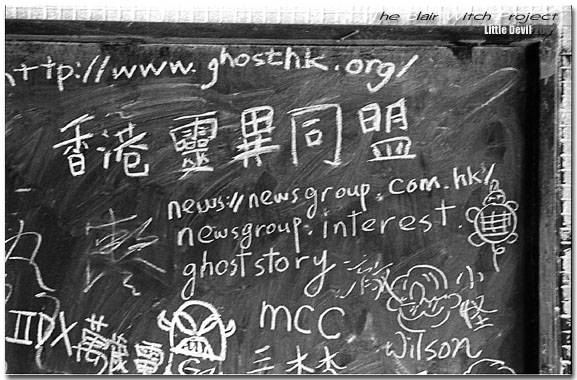 he lair itch roject
Little Devil
http://www.ghosthk.org/
香港靈異同盟
news://newsgroup.com.hk/
newsgroup.interest.
ghoststory
小怪
IIDX
MCC
Wilson
三木木